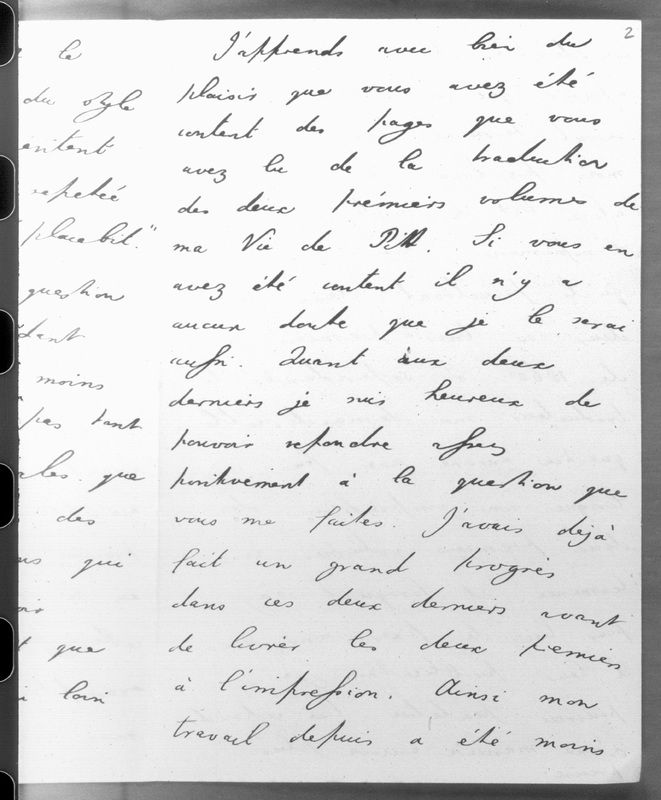 2
J'apprends avec bien du
plaisir que vous avez été
content des pages que vous
avez lu de la traduction
des deux prémiers volumes de
ma Vie de Pitt. Si vous en
avez été content il n'y a
aucun doute que je le serai
aussi. Quant aux deux
derniers je suis heureux de
pouvoir repondre assez
positivement à la question que
vous me faites. J'avais déjà
fait un grand progrès
dans ces deux derniers avant
de livrer les deux premiers
à l'impression. Ainsi mon
travail depuis a été moins
le
du style
repeté
placabil."
question
moins
pas tant
que
des
qui
que
loin